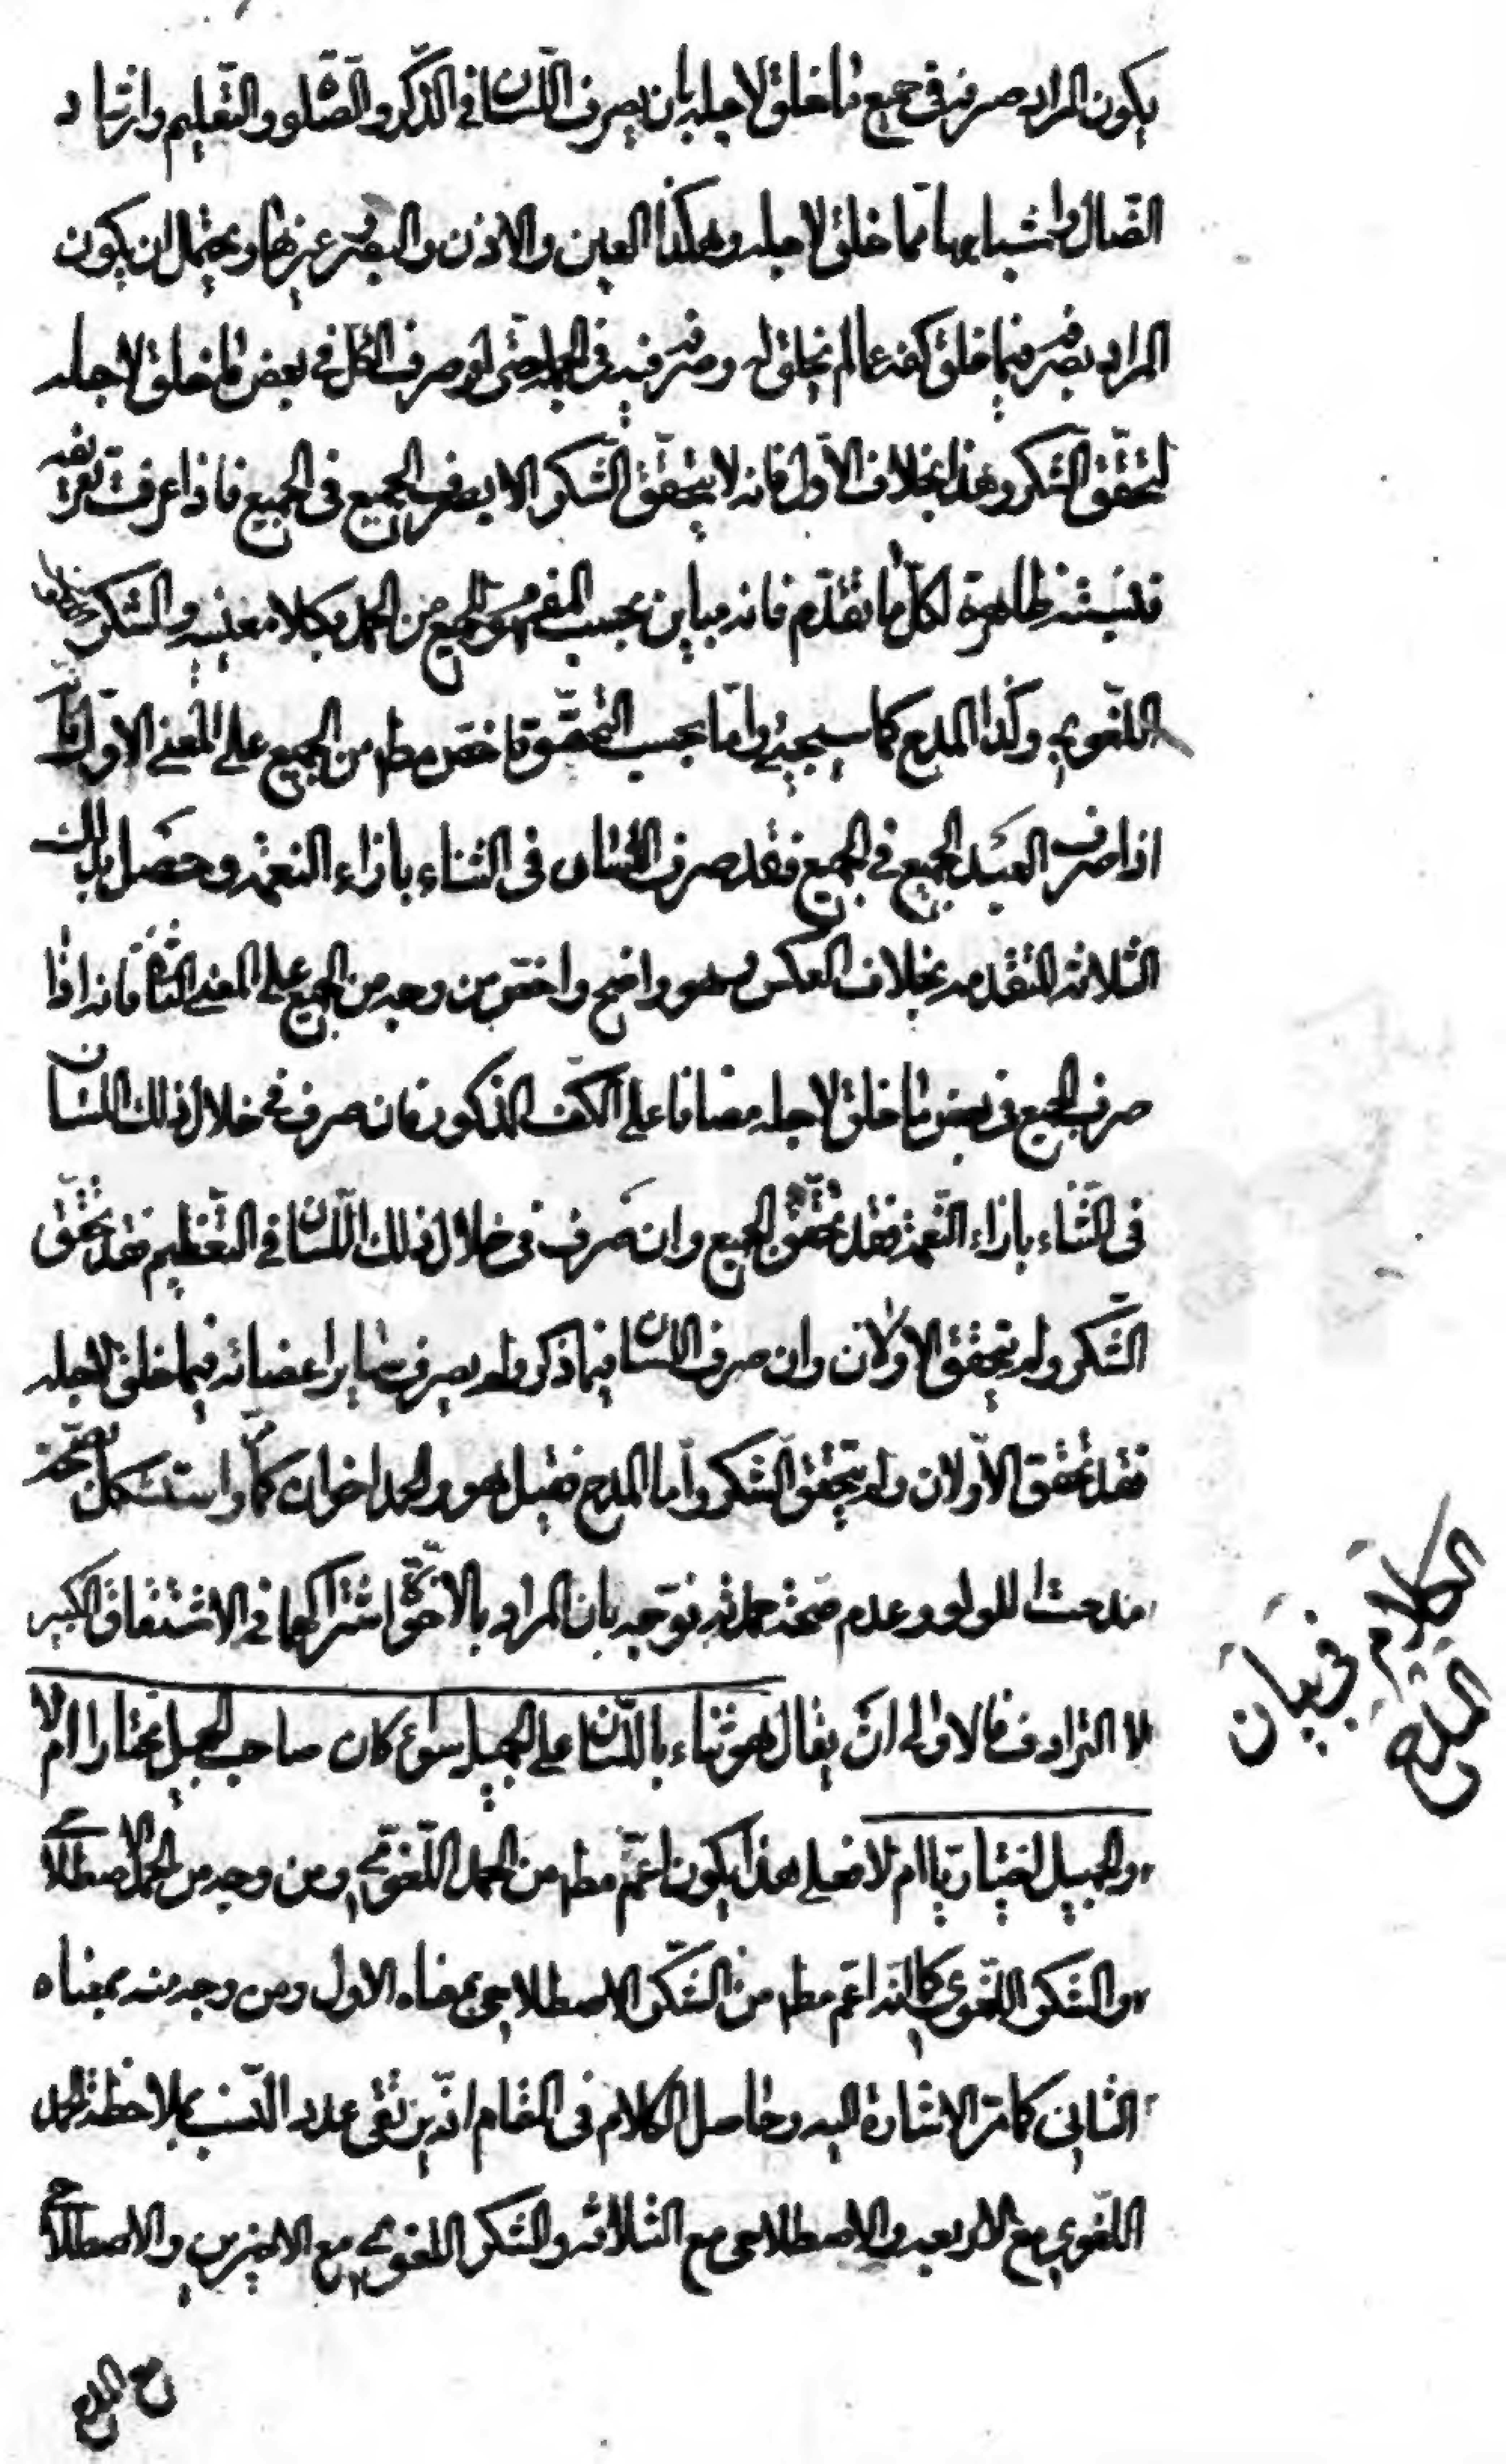 يكون المراد صرفه في جميع ما خلق لاجله بان يصرف اللسان في الذكر والصلوة والتعليم وارشاد
الضال واشباهها مما خلق لاجله وهكذا العين والاذن والبصر وغيرها ويحتمل ان يكون
المراد بصرفه فيما خلق كفه عما لم يخلق له وصرفه فيه في الجملة حتى لو صرف الكل في بعض ما خلق لاجله
لتحقق الشكر وهذا بخلاف الاول فانه لا يتحقق الشكر الا بصرف الجميع في الجميع فاذا عرفت تعريفه
فنسبته ظاهرة لكل ما تقدم فانه مباين بحسب المفهوم للجميع من الحمد بكلا معنييه والشكر
اللغوي وكذا المدح كما سيجيئ واما بحسب التحقق فاخص مط من الجميع على المعنى الاول فانه
اذا صرف العبد الجميع في الجميع فقد صرف اللسان في الثناء بازاء النعمة وحصل بذلك
الثلاثة المتقدمة بخلاف العكس وهو واضح واخص من وجه من الجميع على المعنى الثاني فانه اذا
صرف الجميع في بعض ما خلق لاجله مضافا على الكف المذكور فان صرف في خلال ذلك اللسان
في الثناء بازاء النعمة فقد تحقق الجميع وان صرف في خلال ذلك اللسان في التعظيم فقد تحقق
الشكر ولم يتحقق الاولان وان صرف اللسان فيما ذكر ولم يصرف ساير اعضائه فيما خلق لاجله
فقد تحقق الاولان ولم يتحقق الشكر واما المدح فقيل هو والحمد اخوان كما مر واستشكل بصحة
مدحت اللؤلؤ وعدم صحة حمدته فوجه بان المراد بالاخوة اشتراكهما في الاشتقاق الكبير
لا الترادف فالاولى ان يقال هو ثناء باللسان على الجميل سواء كان صاحب الجميل مختارا ام لا
والجميل اختياريا ام لا فعلى هذا يكون اعم مط من الحمد اللغوي ومن وجه من الحمد الاصطلاحي
والشكر اللغوي كما انه اعم مط من الشكر الاصطلاحي بمعناه الاول ومن وجه منه بمعناه
الثاني كما مر الاشارة اليه وحاصل الكلام في المقام انه يرتقى عدد النسب بملاحظة الحمد
اللغوي مع الاربعة والاصطلاحي مع الثلاثة والشكر اللغوي مع الاخيرين والاصطلاحي
مع المدح
الكلام في بيان
المدح